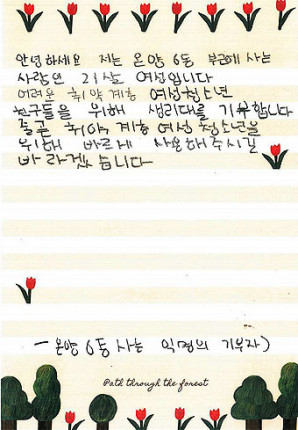 안녕하세요 저는 온양 6동 부근에 사는
사랑인 21살 여성입니다
어려운 취약 계층 여성청소년
친구들을 위해 생리대를 기부합니다
취약 계층 여성 청소년을
위해 바르게 사용해주시길
바라겠습니다
- 온양 6동 사는 익명의 기부자)
Path through the forest